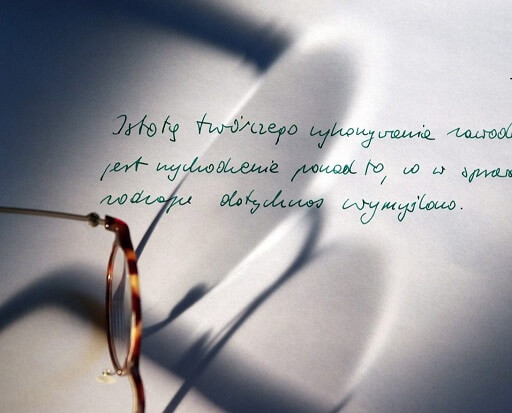 Istotą twórczego wykonywania zawodu
jest wychodzenie ponad to, co w
rodzaje dotychczas wymyślono.